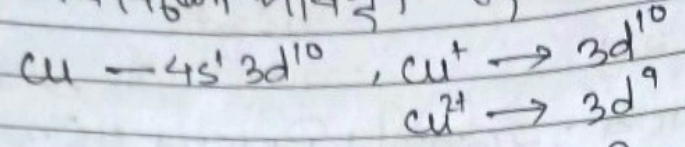 Cu — 4s¹ 3d¹⁰ , Cu⁺ → 3d¹⁰
Cu²⁺ → 3d⁹